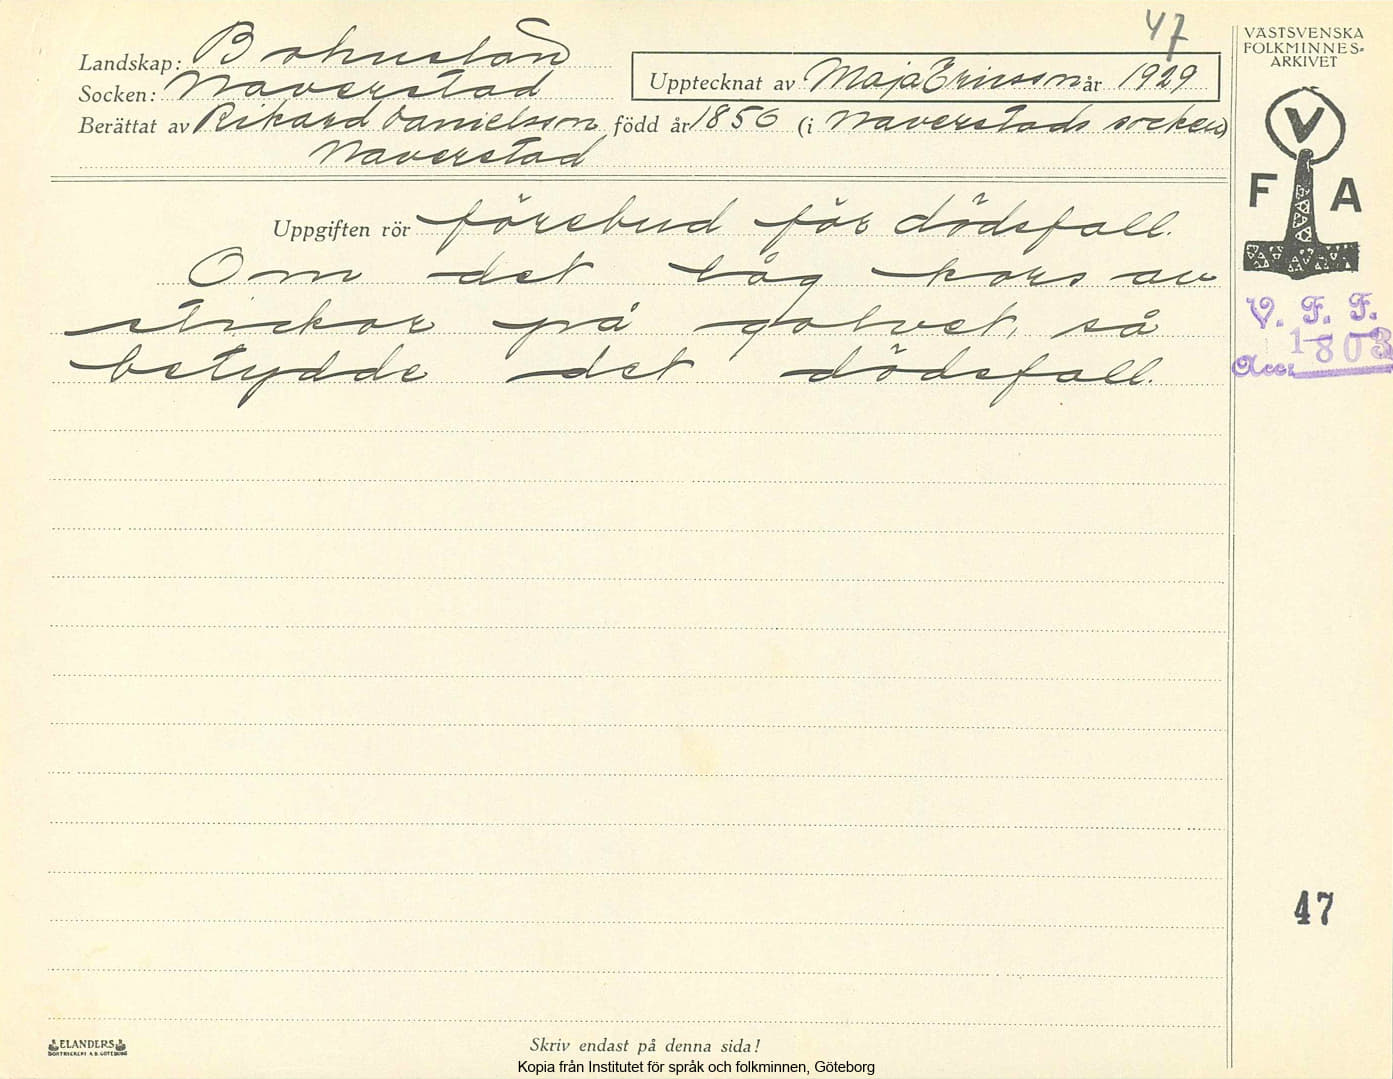 47
VÄSTSVENSKA
FOLKMINNES-
ARKIVET
Landskap: Bohuslän
Socken: Naverstad
Upptecknat av Maja Ericsson år 1929
Berättat av Rikard Danielsson född år 1856 (i Naverstads socken)
Naverstad
V
F A
Uppgiften rör förebud för dödsfall.
Om det låg kors av
stickor på golvet, så
betydde det dödsfall.
V. F. F.
Acc: 1803
47
ELANDERS
BOKTRYCKERI A.B. GÖTEBORG
Skriv endast på denna sida!
Kopia från Institutet för språk och folkminnen, Göteborg